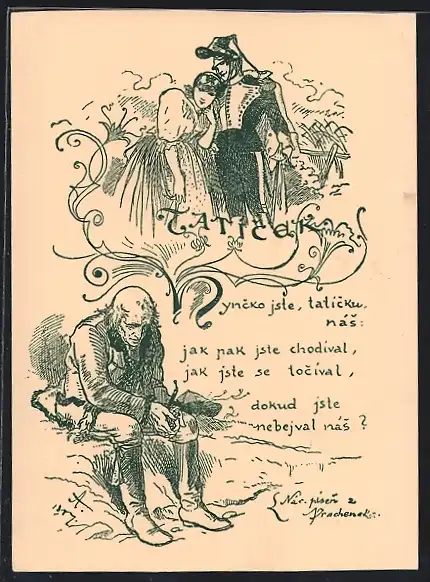 TATÍČEK
Nynčko jste, tatíčku,
náš:
jak pak jste chodíval,
jak jste se točíval,
dokud jste
nebejval náš?
Nár. píseň z
Prachenska.